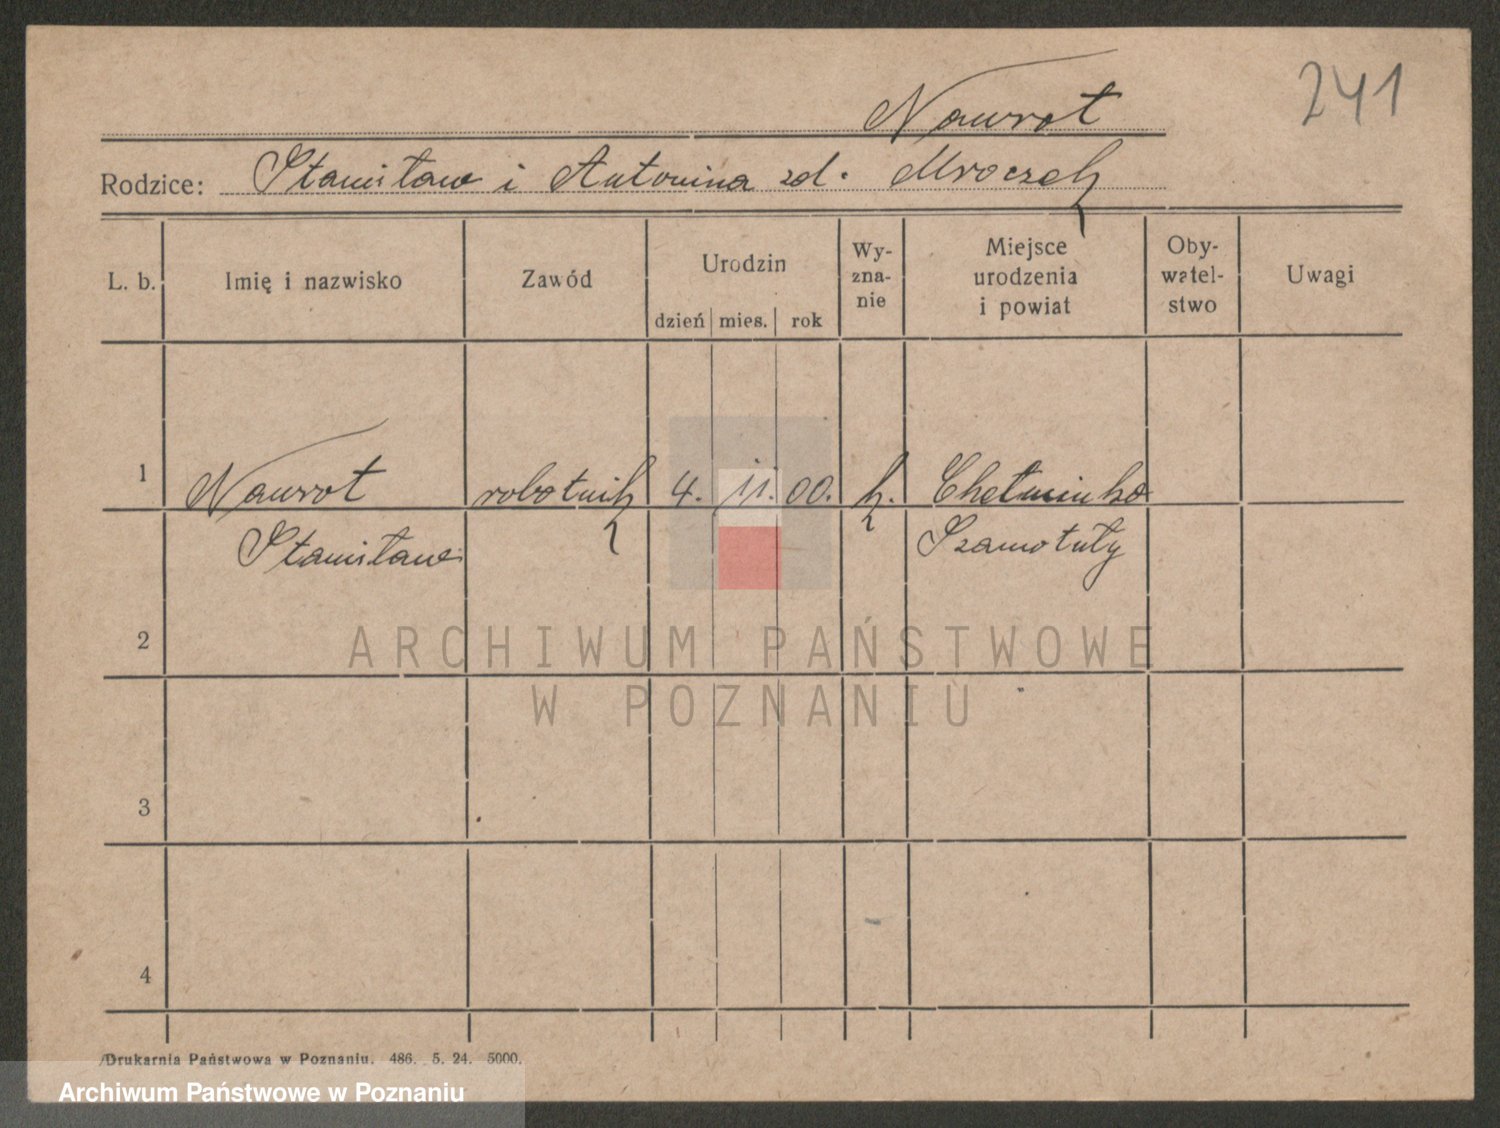 241
Nawrot
Rodzice: Stanisław i Antonina zd. Mroczek
L. b. Imię i nazwisko Zawód Urodzin dzień mies. rok Wy-zna-nie Miejsce urodzenia i powiat Oby-watel-stwo Uwagi
1 Nawrot robotnik 4. 11. 00. k. Chełminko
Stanisław Szamotuły
2
ARCHIWUM PAŃSTWOWE
W POZNANIU
3
4
Drukarnia Państwowa w Poznaniu. 486. 5. 24. 5000.
Archiwum Państwowe w Poznaniu